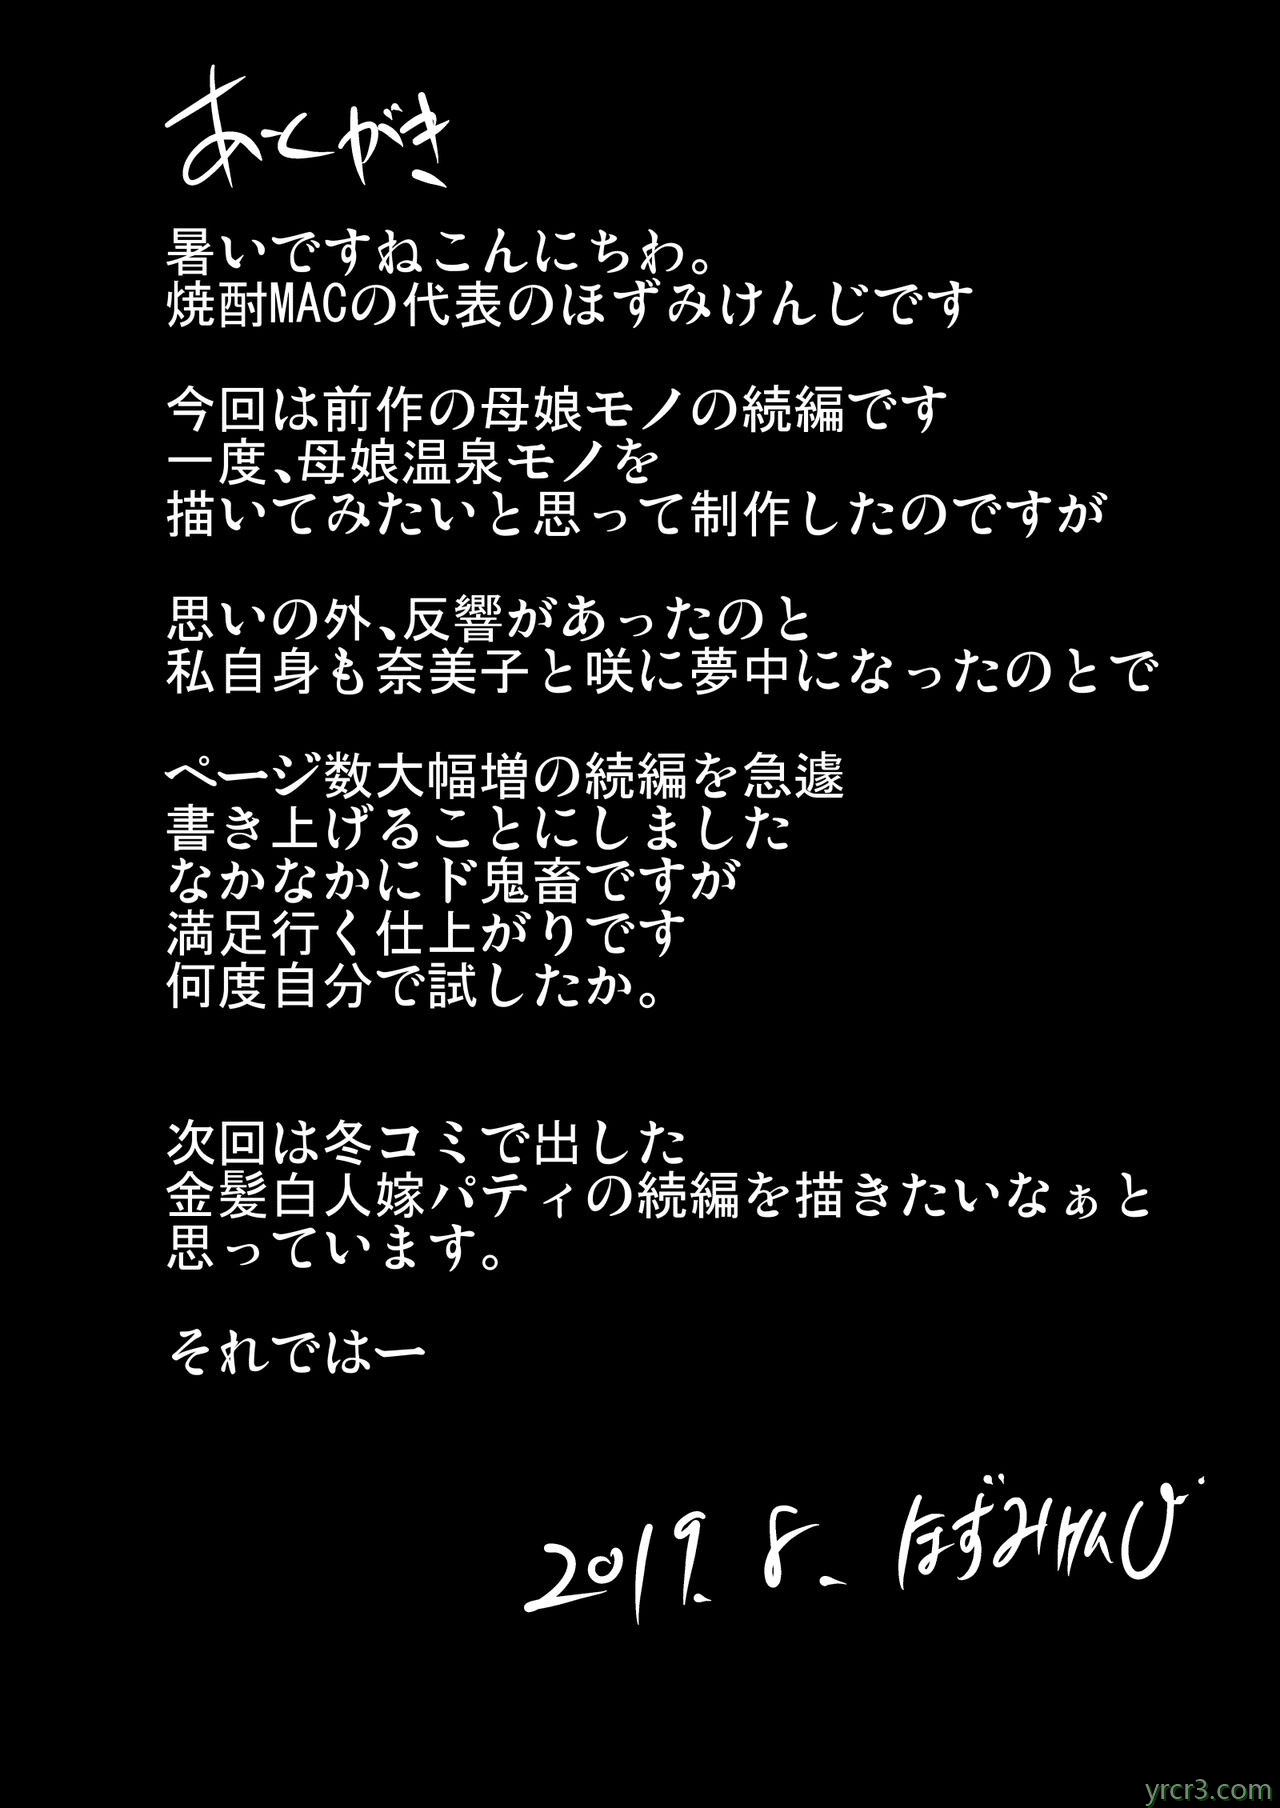 あとがき
暑いですねこんにちわ。
焼酎MACの代表のほずみけんじです
今回は前作の母娘モノの続編です
一度､母娘温泉モノを
描いてみたいと思って制作したのですが
思いの外､反響があったのと
私自身も奈美子と咲に夢中になったのとで
ページ数大幅増の続編を急遽
書き上げることにしました
なかなかにド鬼畜ですが
満足行く仕上がりです
何度自分で試したか。
次回は冬コミで出した
金髪白人嫁パティの続編を描きたいなぁと
思っています。
それではー
2019. 8. ほずみけんじ
yrcr3.com